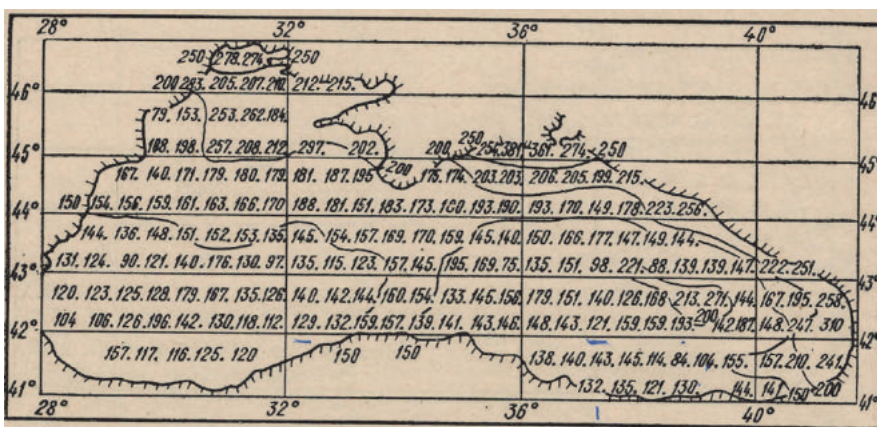 28° 32° 36° 40°
250 278.274. 250
46° 200 283. 205. 207. 210. 212. 215. 46°
79. 153. 253. 262. 184.
45° 108. 198. 257. 208. 212. 297. 202. 200 200. 250 254. 381. 361. 274. 250 45°
167. 140. 171. 179. 180. 179. 181. 187. 195 176. 174. 203. 203. 206. 205. 199. 215.
44° 150 154. 156. 159. 161. 163. 166. 170 188. 181. 151. 183. 173. 180. 193. 190. 193. 170. 149. 178. 223. 256. 44°
144. 136. 148. 151. 152. 153. 135. 145. 154. 157. 169. 170. 159. 145. 140. 150. 166. 177. 147. 149. 144.
43° 131. 124. 90. 121. 140. 176. 130. 97. 135. 115. 123. 157. 145. 195. 169. 75. 135. 151. 98. 221. 88. 139. 139. 147. 222. 251. 43°
120. 123. 125. 128. 179. 167. 135. 126. 140. 142. 144. 160. 154. 133. 145. 156. 179. 151. 140. 126. 168 213. 271. 144. 167. 195. 258.
42° 104 106. 126. 196. 142. 130. 118. 112. 129. 132. 159. 157. 139. 141. 143. 146. 148. 143. 121. 159. 159. 193. 200 142. 187. 148. 247. 310 42°
157. 117. 116. 125. 120 150 150 138. 140. 143. 145. 114. 84. 104. 155. 157. 210. 241.
41° 132. 135. 121. 130. 144. 141. 150 200 41°
28° 32° 36° 40°